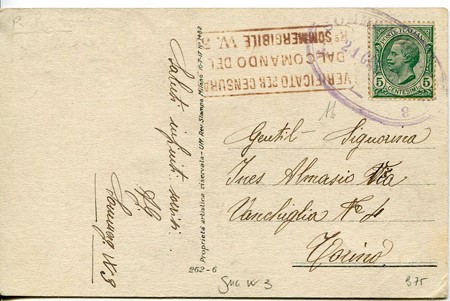 Saluti infiniti
Sommerg. W. 3
Proprietà artistica riservata - Uff. Rev. Stampa, Milano 16-7-17 N° 2462
262-6
VERIFICATO PER CENSURA
DAL COMANDO DEL
R° SOMMERGIBILE W.
POSTE ITALIANE
5 5
CENTESIMI
16
Gentil. Signorina
Ines Almasio Via
Vanchiglia N° 4
Torino
Smg W 3
375